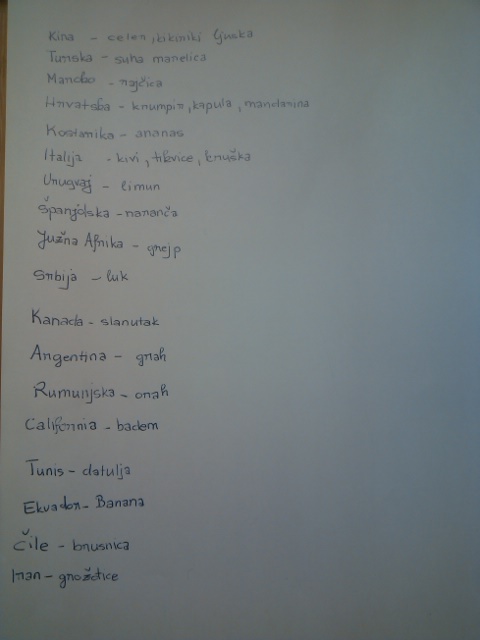 Kina - celer, kikiriki ljuska
Turska - suha marelica
Maroko - rajčica
Hrvatska - krumpir, kapula, mandarina
Kostarika - ananas
Italija - kivi, tikvice, kruška
Urugvaj - limun
Španjolska - naranča
Južna Afrika - grejp
Srbija - luk
Kanada - slanutak
Argentina - grah
Rumunjska - orah
California - badem
Tunis - datulja
Ekvador - Banana
Čile - brusnica
Iran - grožđice